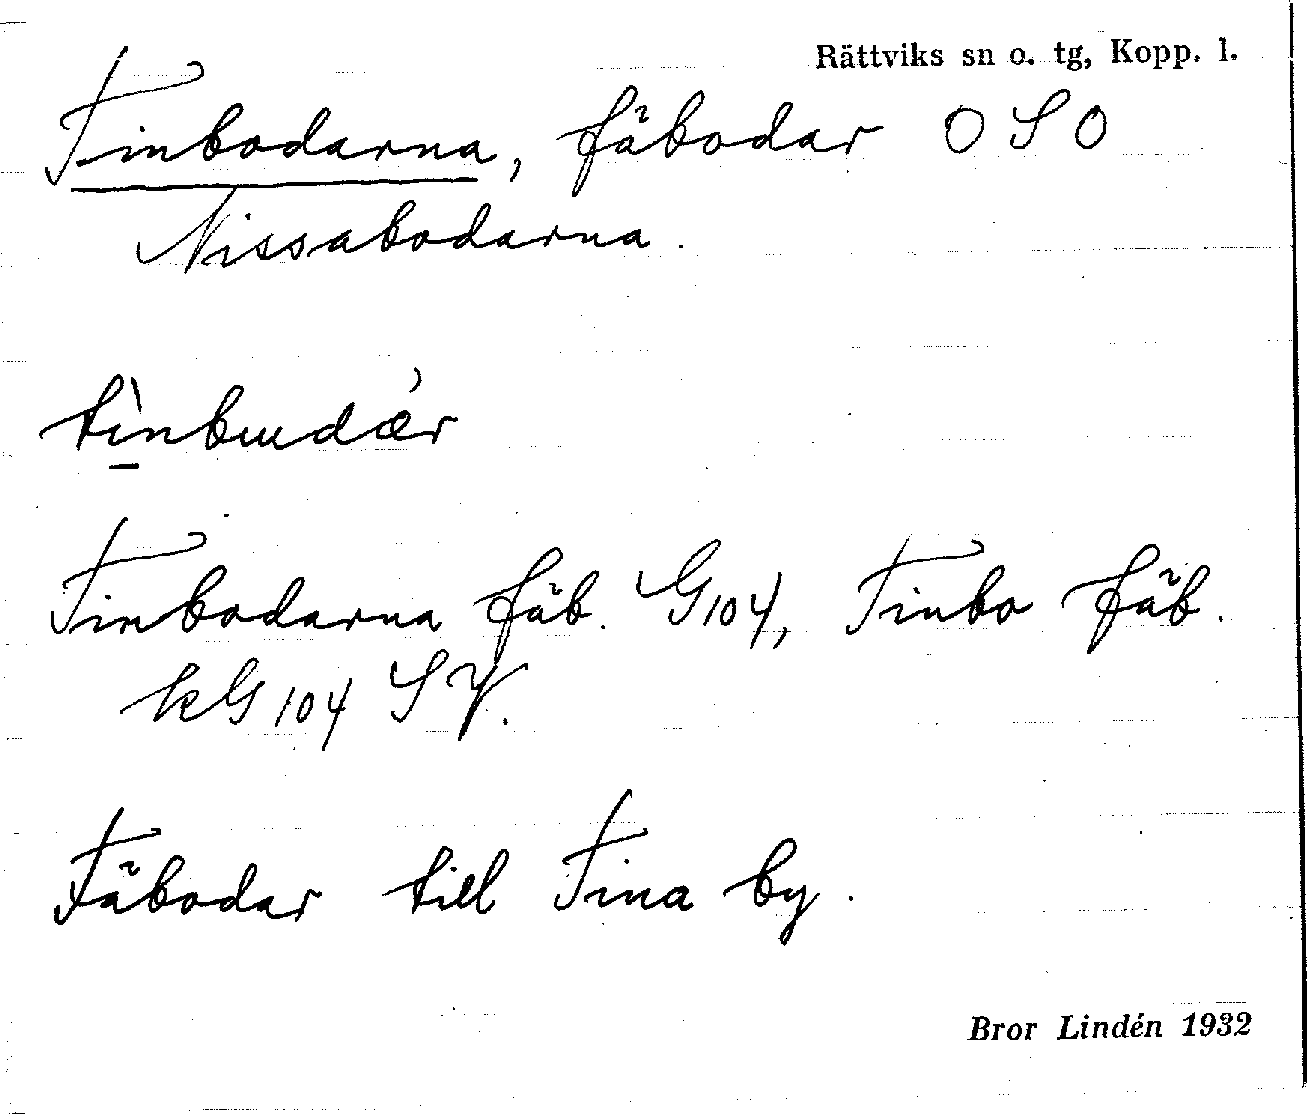 Rättviks sn o. tg, Kopp. l.
Tinbodarna, fäbodar O S O
Nissabodarna.
tı̖̀nbɯdǽr
Tinbodarna fäb. G104, Tinbo fäb.
kG104 SV.
Fäbodar till Tina by.
Bror Lindén 1932